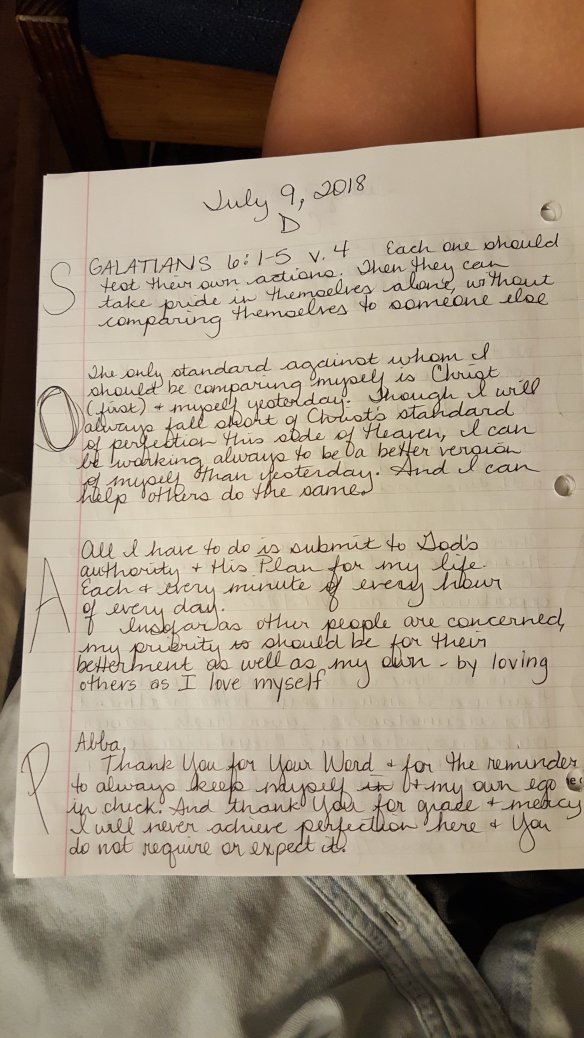 July 9, 2018
D
S
GALATIANS 6:1-5 v. 4 Each one should
test their own actions. Then they can
take pride in themselves alone, without
comparing themselves to someone else
O
The only standard against whom I
should be comparing myself is Christ
(first) + myself yesterday. Though I will
always fall short of Christ's standard
of perfection this side of Heaven, I can
be working always to be a better version
of myself than yesterday. And I can
help others do the same.
A
All I have to do is submit to God's
authority + His Plan for my life.
Each + every minute of every hour
of every day.
Insofar as other people are concerned,
my priority should be for their
betterment as well as my own - by loving
others as I love myself
P
Abba,
Thank You for Your Word + for the reminder
to always keep myself + my own ego
in check. And thank You for grace + mercy
I will never achieve perfection here + You
do not require or expect it.